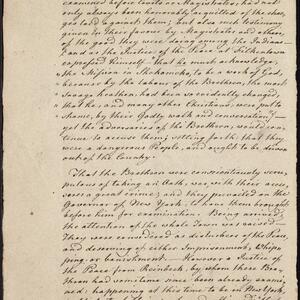 examined before Courts or Magistrates, had not
only always been honorably acquitted of the char-
ges laid against them; but also such testimony
given in their favour by Magistrates and others,
of the good they were doing among the Indians —
and as the Justice of the Peace at Filkentown
expressed himself "that he must acknowledge,
the Mission in Shekomeko, to be a work of God,
because by the labour of the Brethren, the most
savage heathen, had been so evidently changed,
that he, and many other Christians, were put to
shame, by their Godly walk and conversation" —
yet the adversaries of the Brethren, would con-
tinue to accuse them; setting forth that they
were a dangerous People, and ought to be driven
out of the Country. —
That the Brethren were conscientiously scru-
pulous of taking an Oath, was with their accu-
sers a great crime; and they prevailed on the
Governor of New York, to have them brought
before him for examination. Being arrived;
the attention of the whole Town was raised —
They were considered as disturbers of the Peace,
and deserving of either Imprisonment, whip-
ping, or banishment. — However a Justice of
the Peace from Reinbeck, by whom these Bre-
thren had sometime since been already exami-
ned; happening at this time to be in New York,